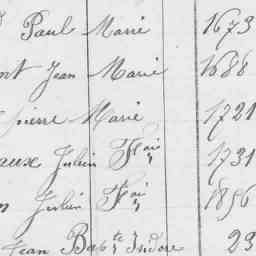 Paul Marie 1673
Jean Marie 1688
Pierre Marie 1721
Julien Fois 1731
Julien Fois 1896
Jean Bapte Isidore 23